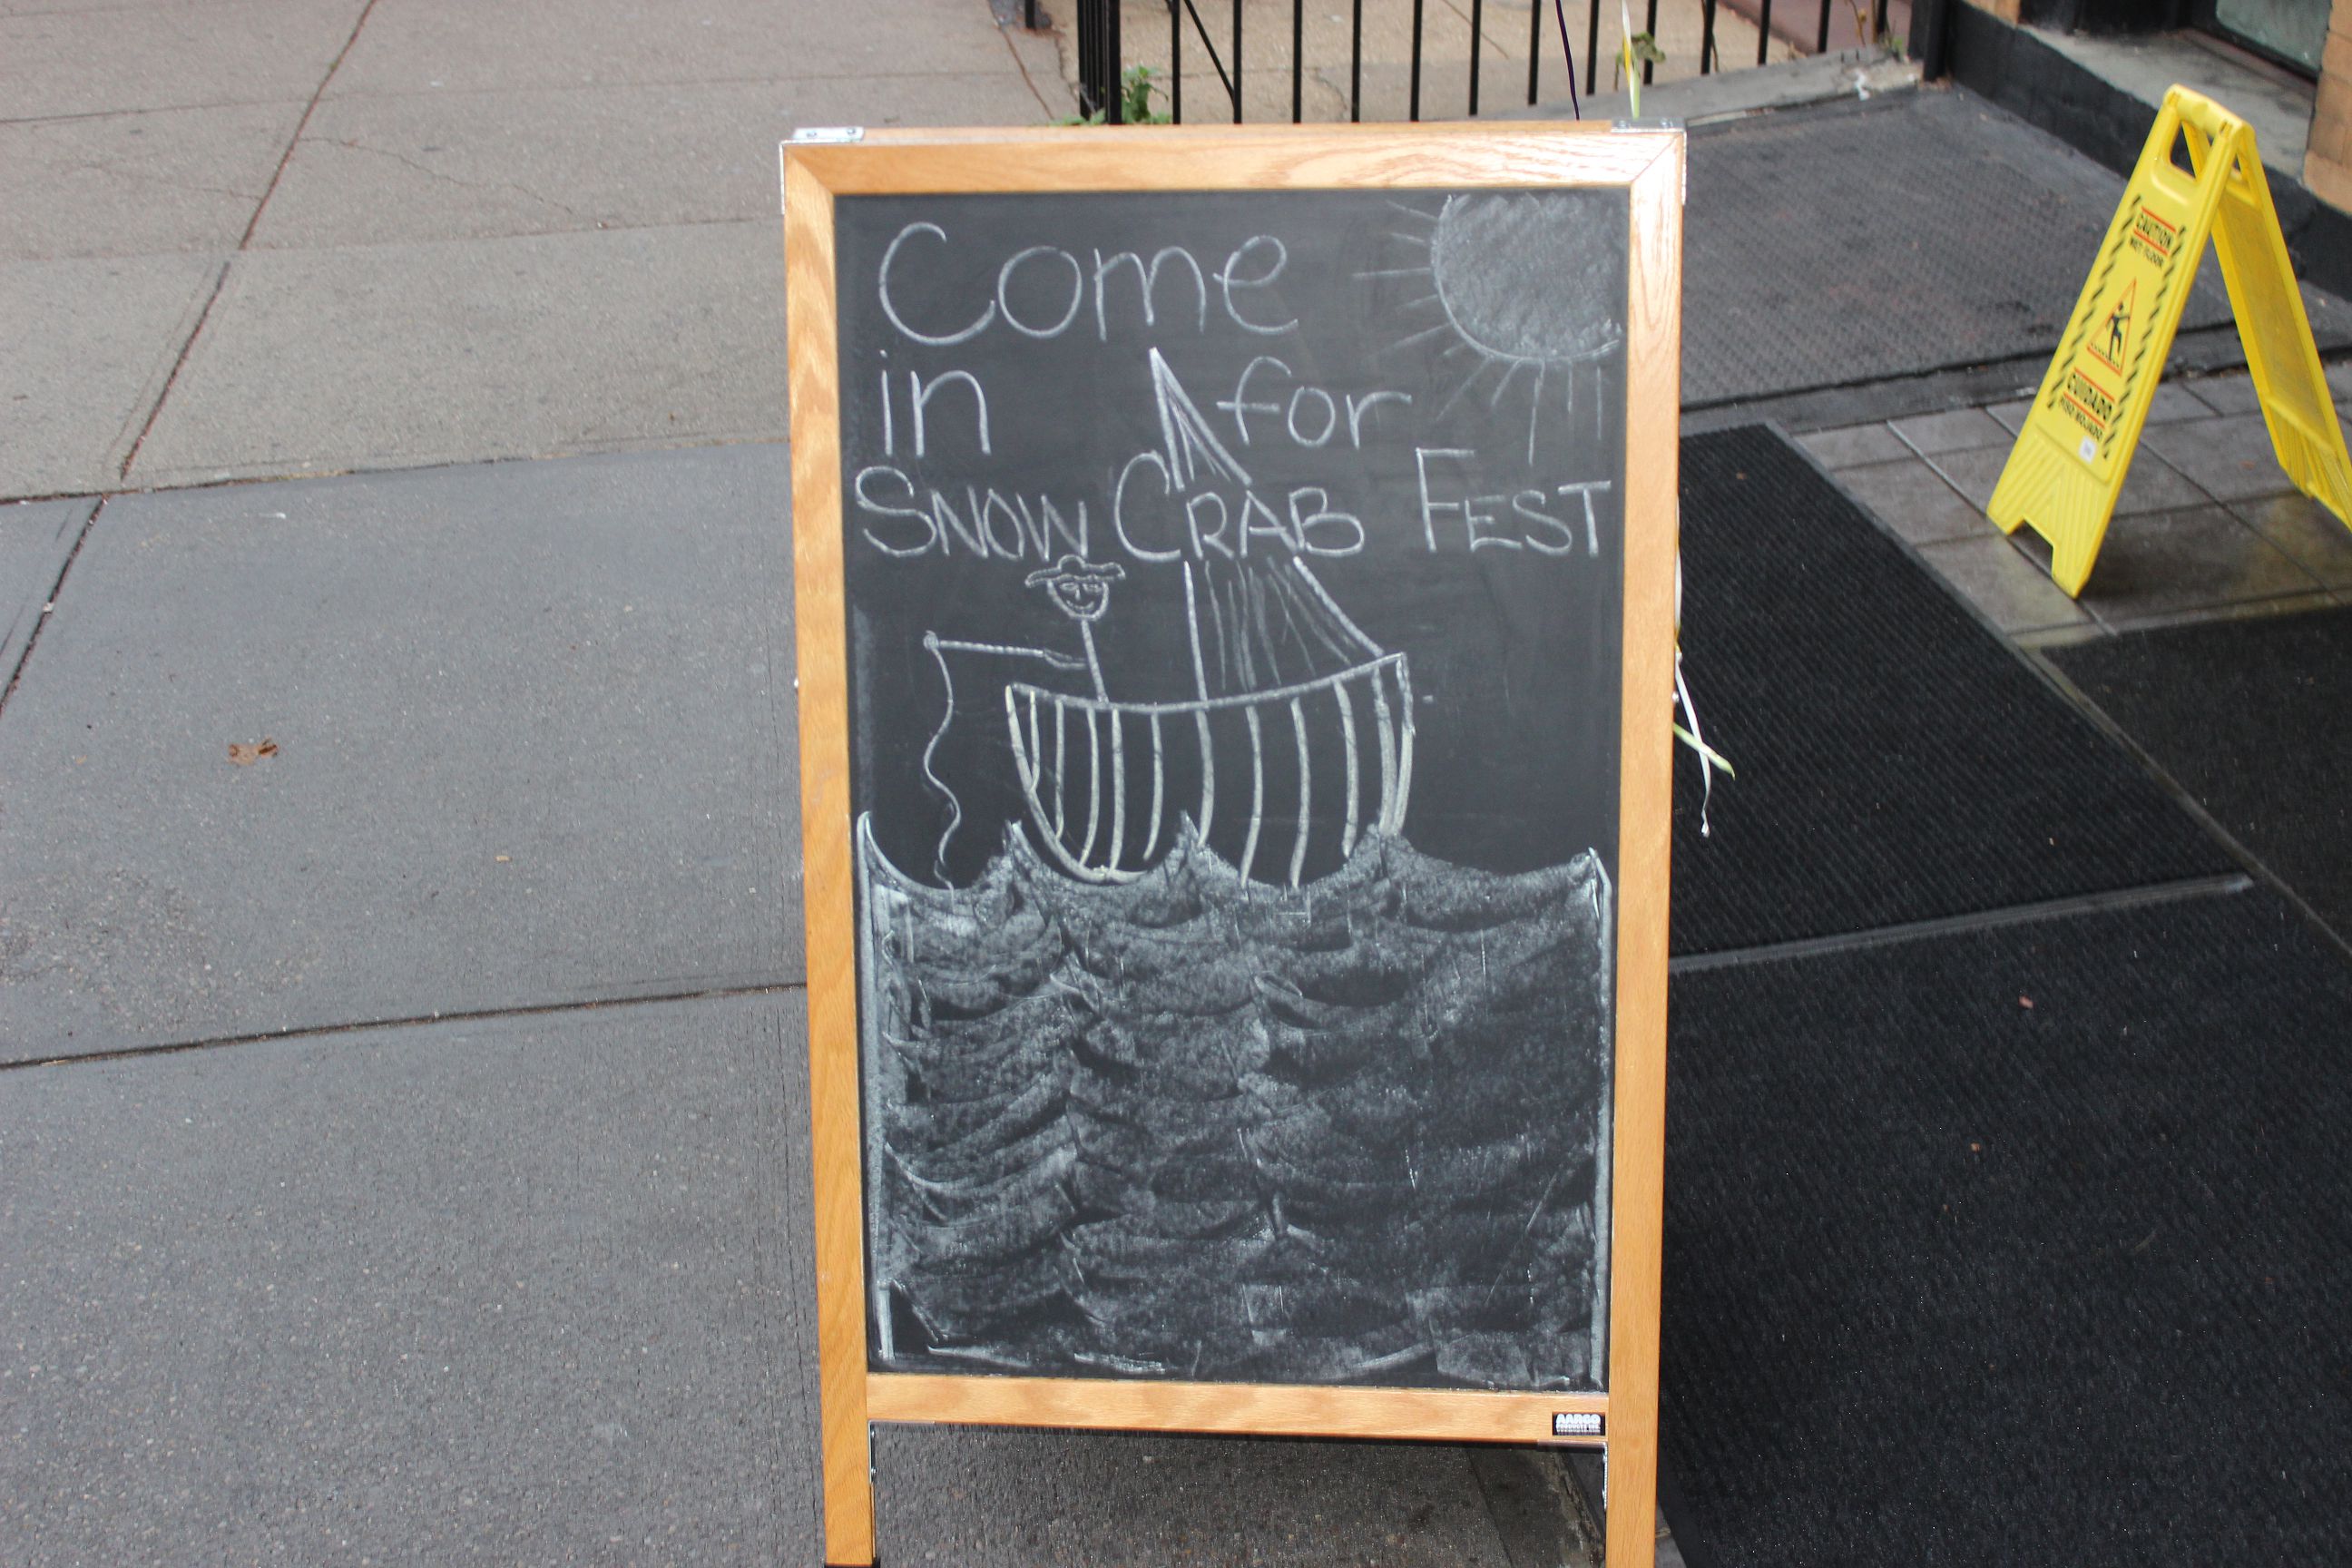 Come
in for
SNOW CRAB FEST
CAUTION
WET FLOOR
CUIDADO
PISO MOJADO
AARCO